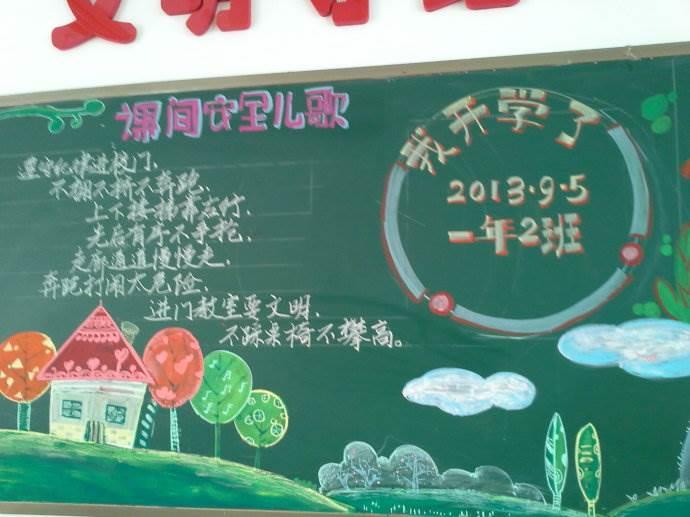 课间安全儿歌
遵守纪律进校门、
不拥不挤不奔跑、
上下楼梯靠右行、
先后有序不争抢、
走廊通道慢慢走、
奔跑打闹太危险、
进门教室要文明、
不踩桌椅不攀高。
我开学了
2013·9·5
一年2班